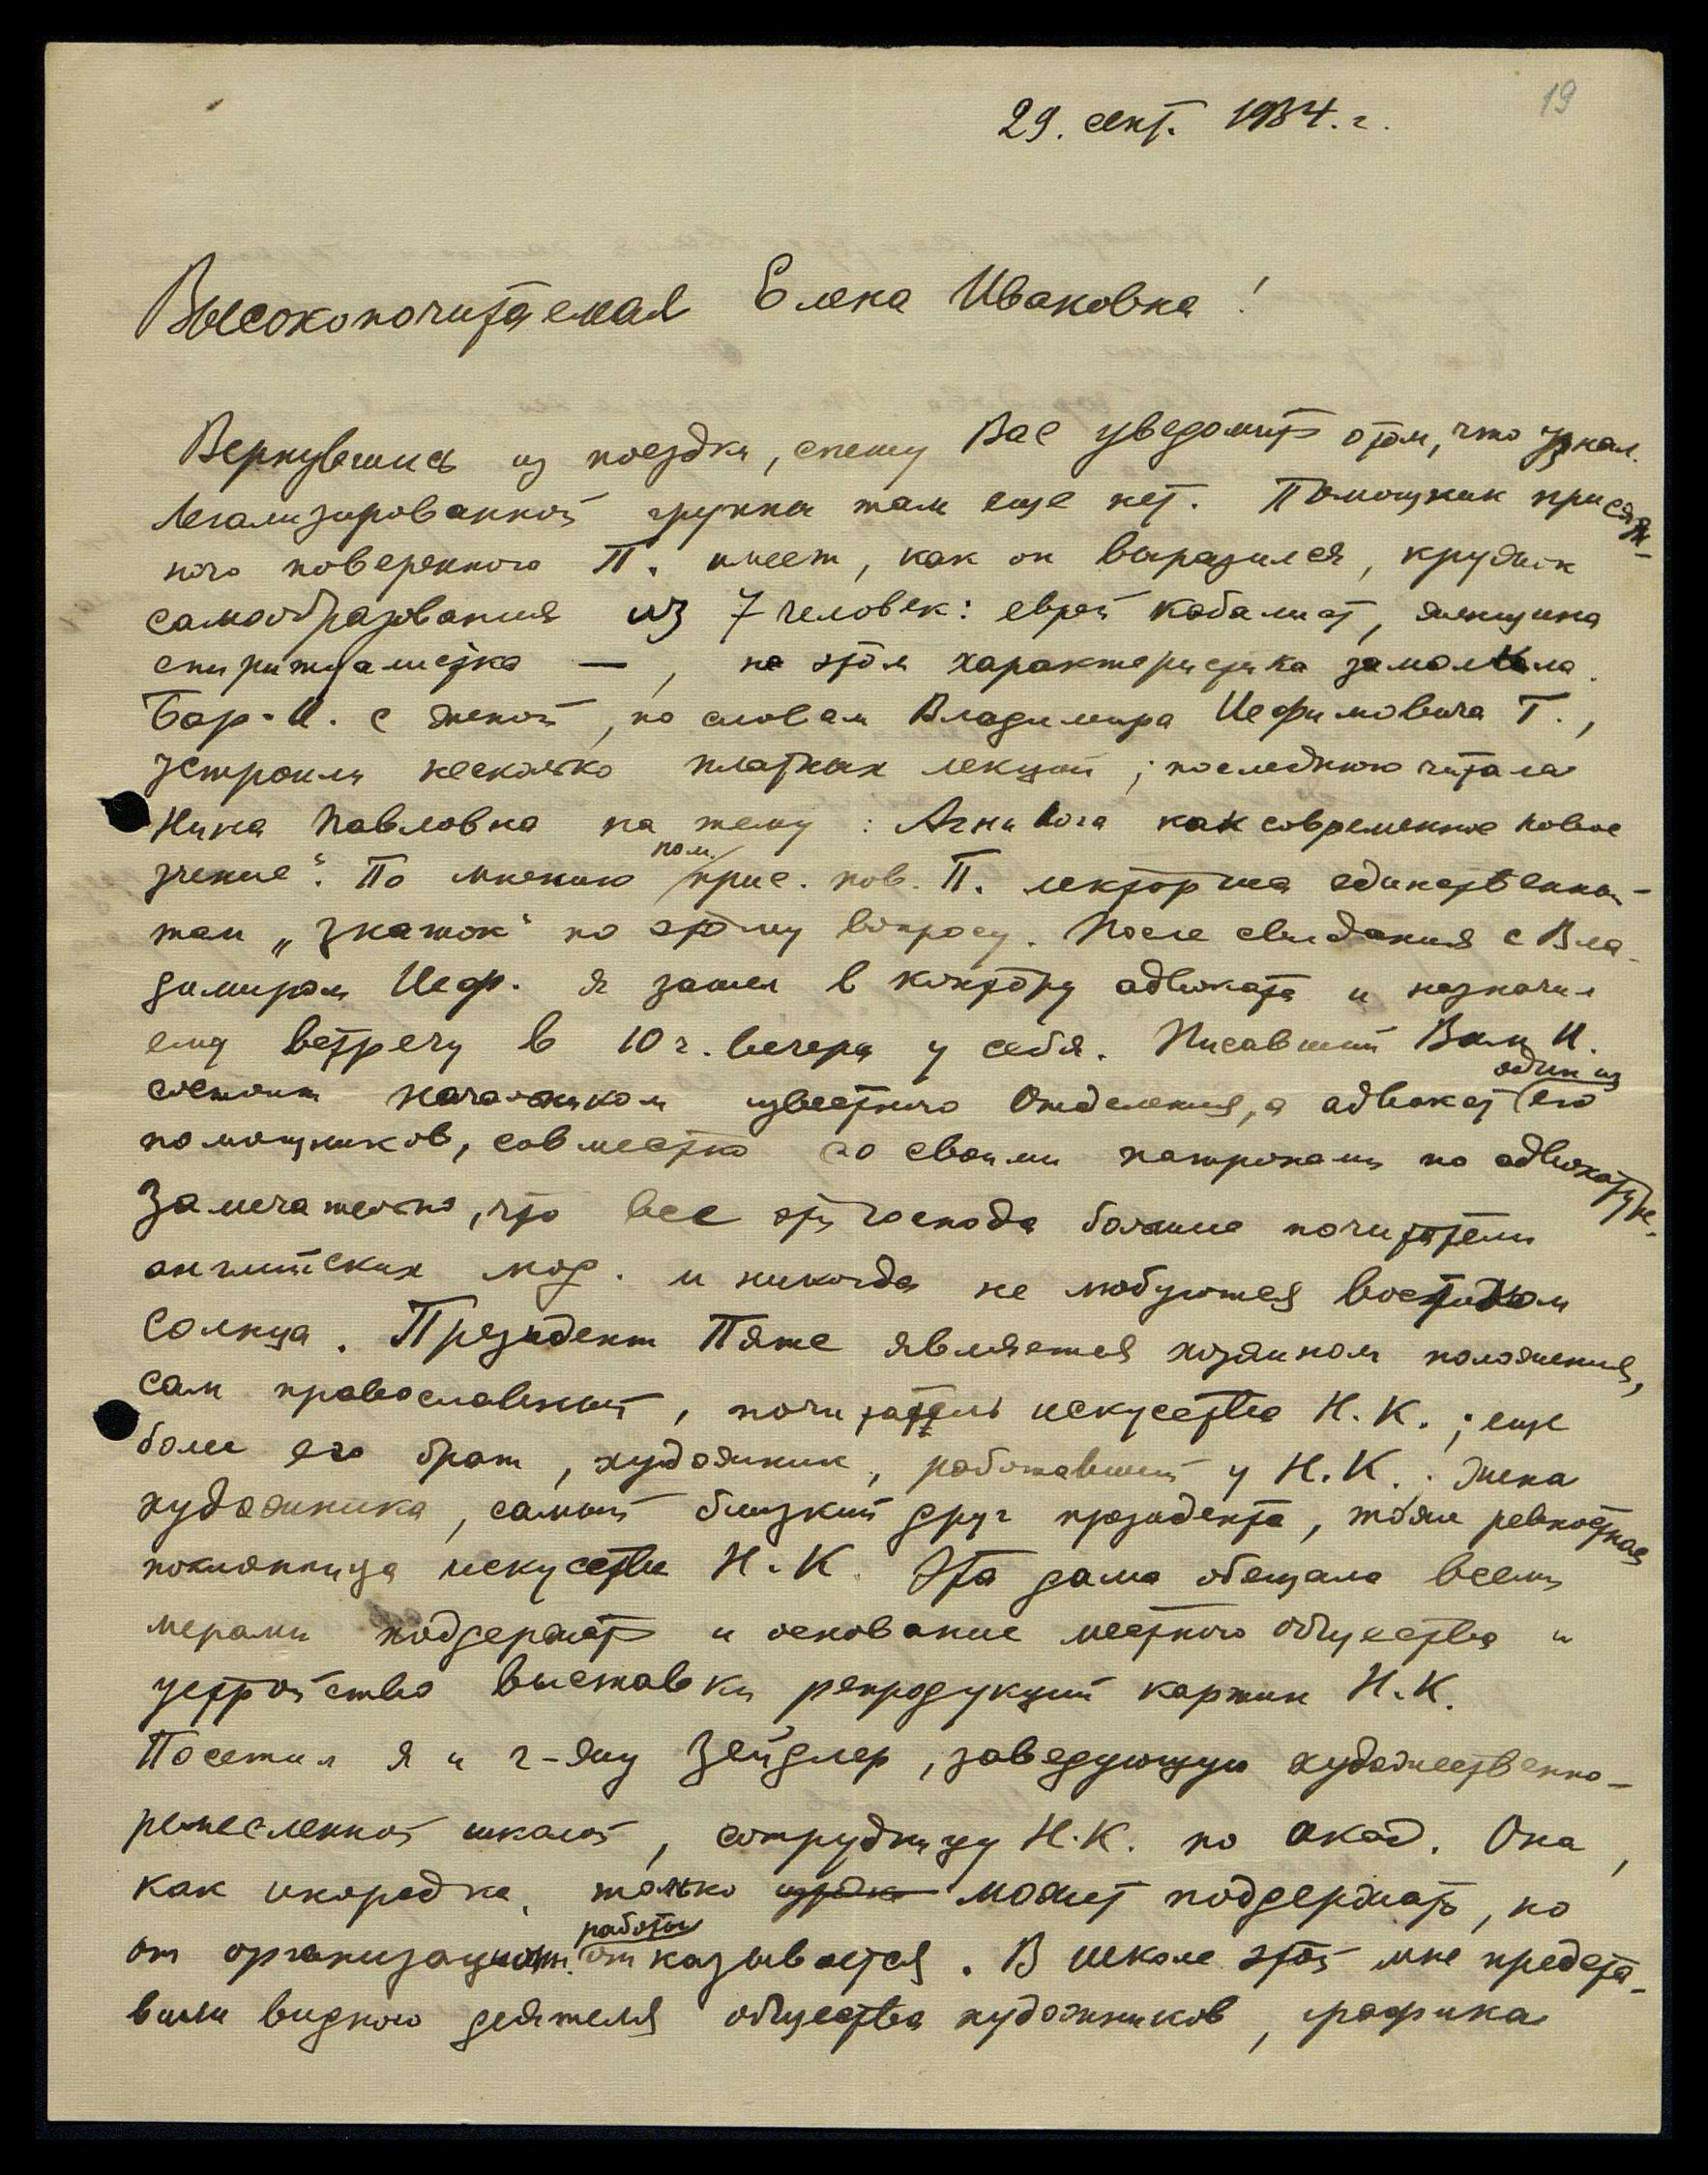 19
29. сент. 1934. г.
Высокопочитаемая Елена Ивановна!
Вернувшись из поездки, спешу Вас уведомить о том, что узнал.
Легализированной группы там еще нет. Помощник присяж-
ного поверенного П. имеет, как он выразился, кружок
самообразования из 7 человек: еврей кабалист, женщина
спиритуалистка —, на этом характеристика замолкла.
Бар-И. с женой, по словам Владимира Иефимовича Т.,
устроили несколько платных лекций; последнюю читала
Нина Павловна на тему: Агни Йога как современное новое
учение". По мнению пом. прис. пов. П. лекторша единственный
там „знаток" по этому вопросу. После свидания с Вла-
димиром Иеф. я зашел в контору адвоката и назначил
ему встречу в 10 г. вечера у себя. Писавший Вам И.
состоит начальником известного Отделения, а адвокат один из его
помощников, совместно со своими патронами по адвокатуре.
Замечательно, что все эти господа большие почитатели
английских мод. и никогда не любуются востоком
солнца. Президент Пяте является хозяином положения,
сам православный, почитатель искусства Н. К.; еще
боле его брат, художник, работавший у Н. К.. Жена
художника, самый близкий друг президента, тоже ревностная
поклонница искусства Н. К. Эта дама обещала всеми
мерами поддержать и основание местного общества и
устройство выставки репродукций картин Н. К.
Посетил я и г-жу Зейдлер, заведующую художественно-
ремесленной школой, сотрудницу Н. К. по акад. Она,
как инородка, только может поддержать, но
от организацион. работы отказывается. В школе этой мне предста-
вили видного деятеля общества художников, графика